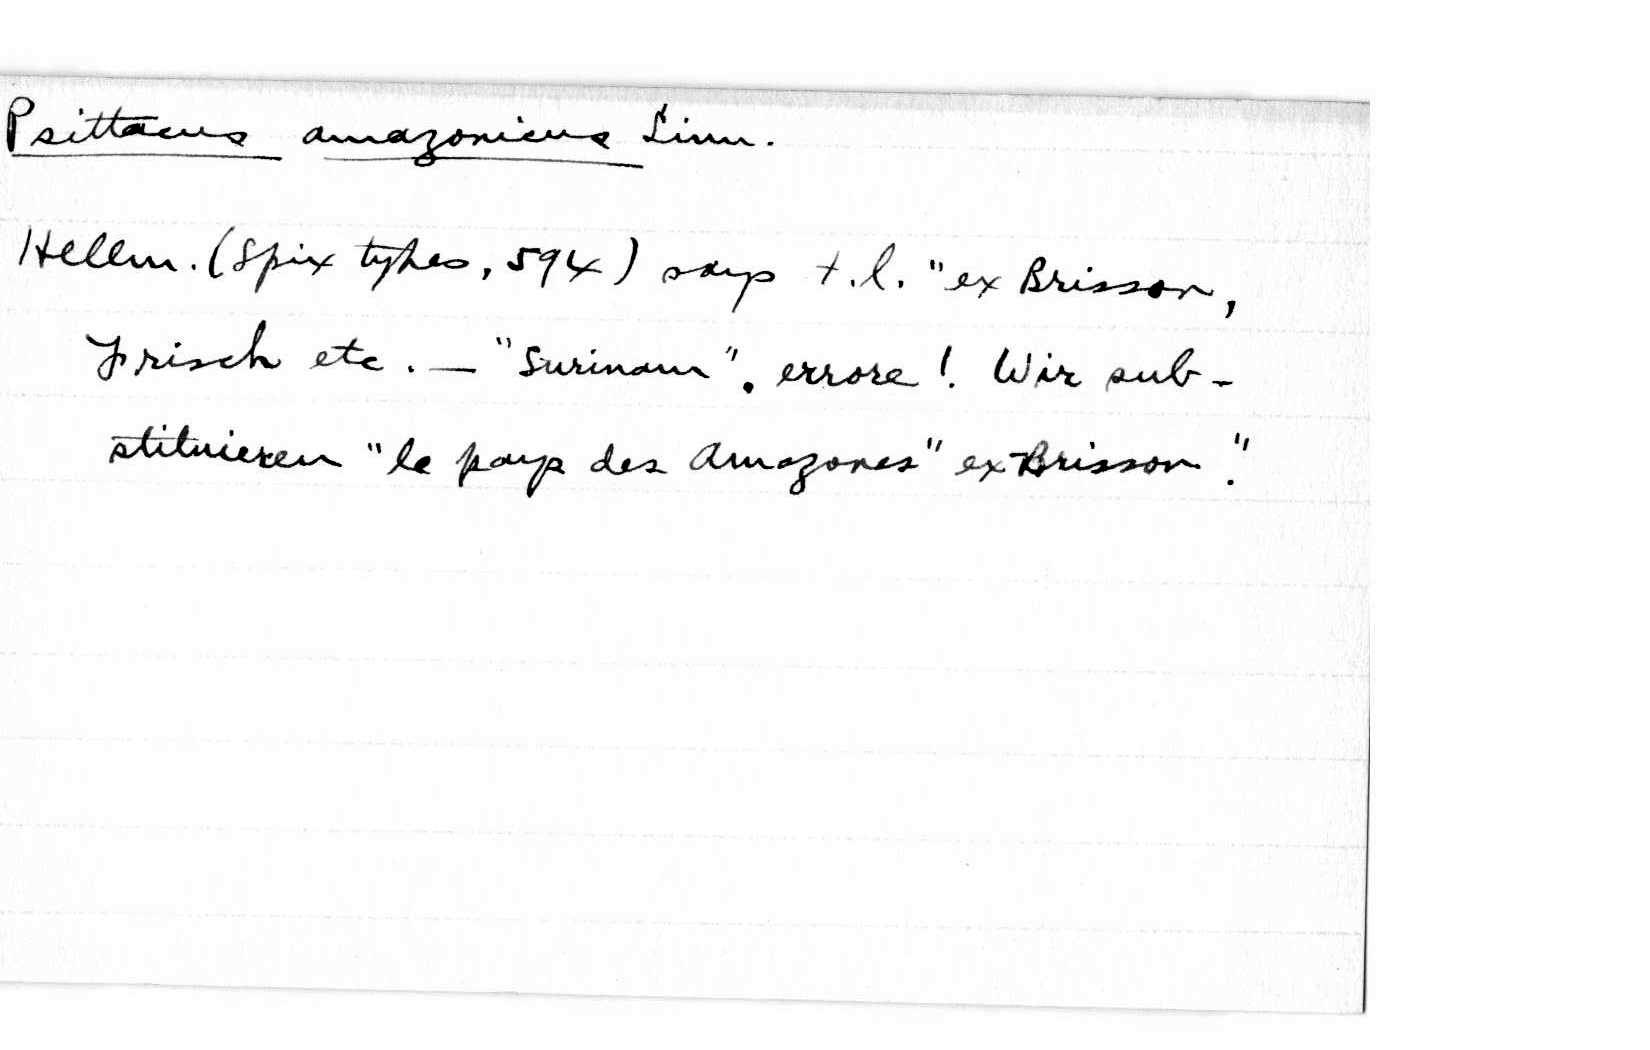 Psittacus amazonicus Linn.
Hellm. (Spix types, 594) says t.l. "ex Brisson,
Frisch etc. — "Surinam". errore! Wir sub-
stituieren "le pays des Amazones" ex Brisson."